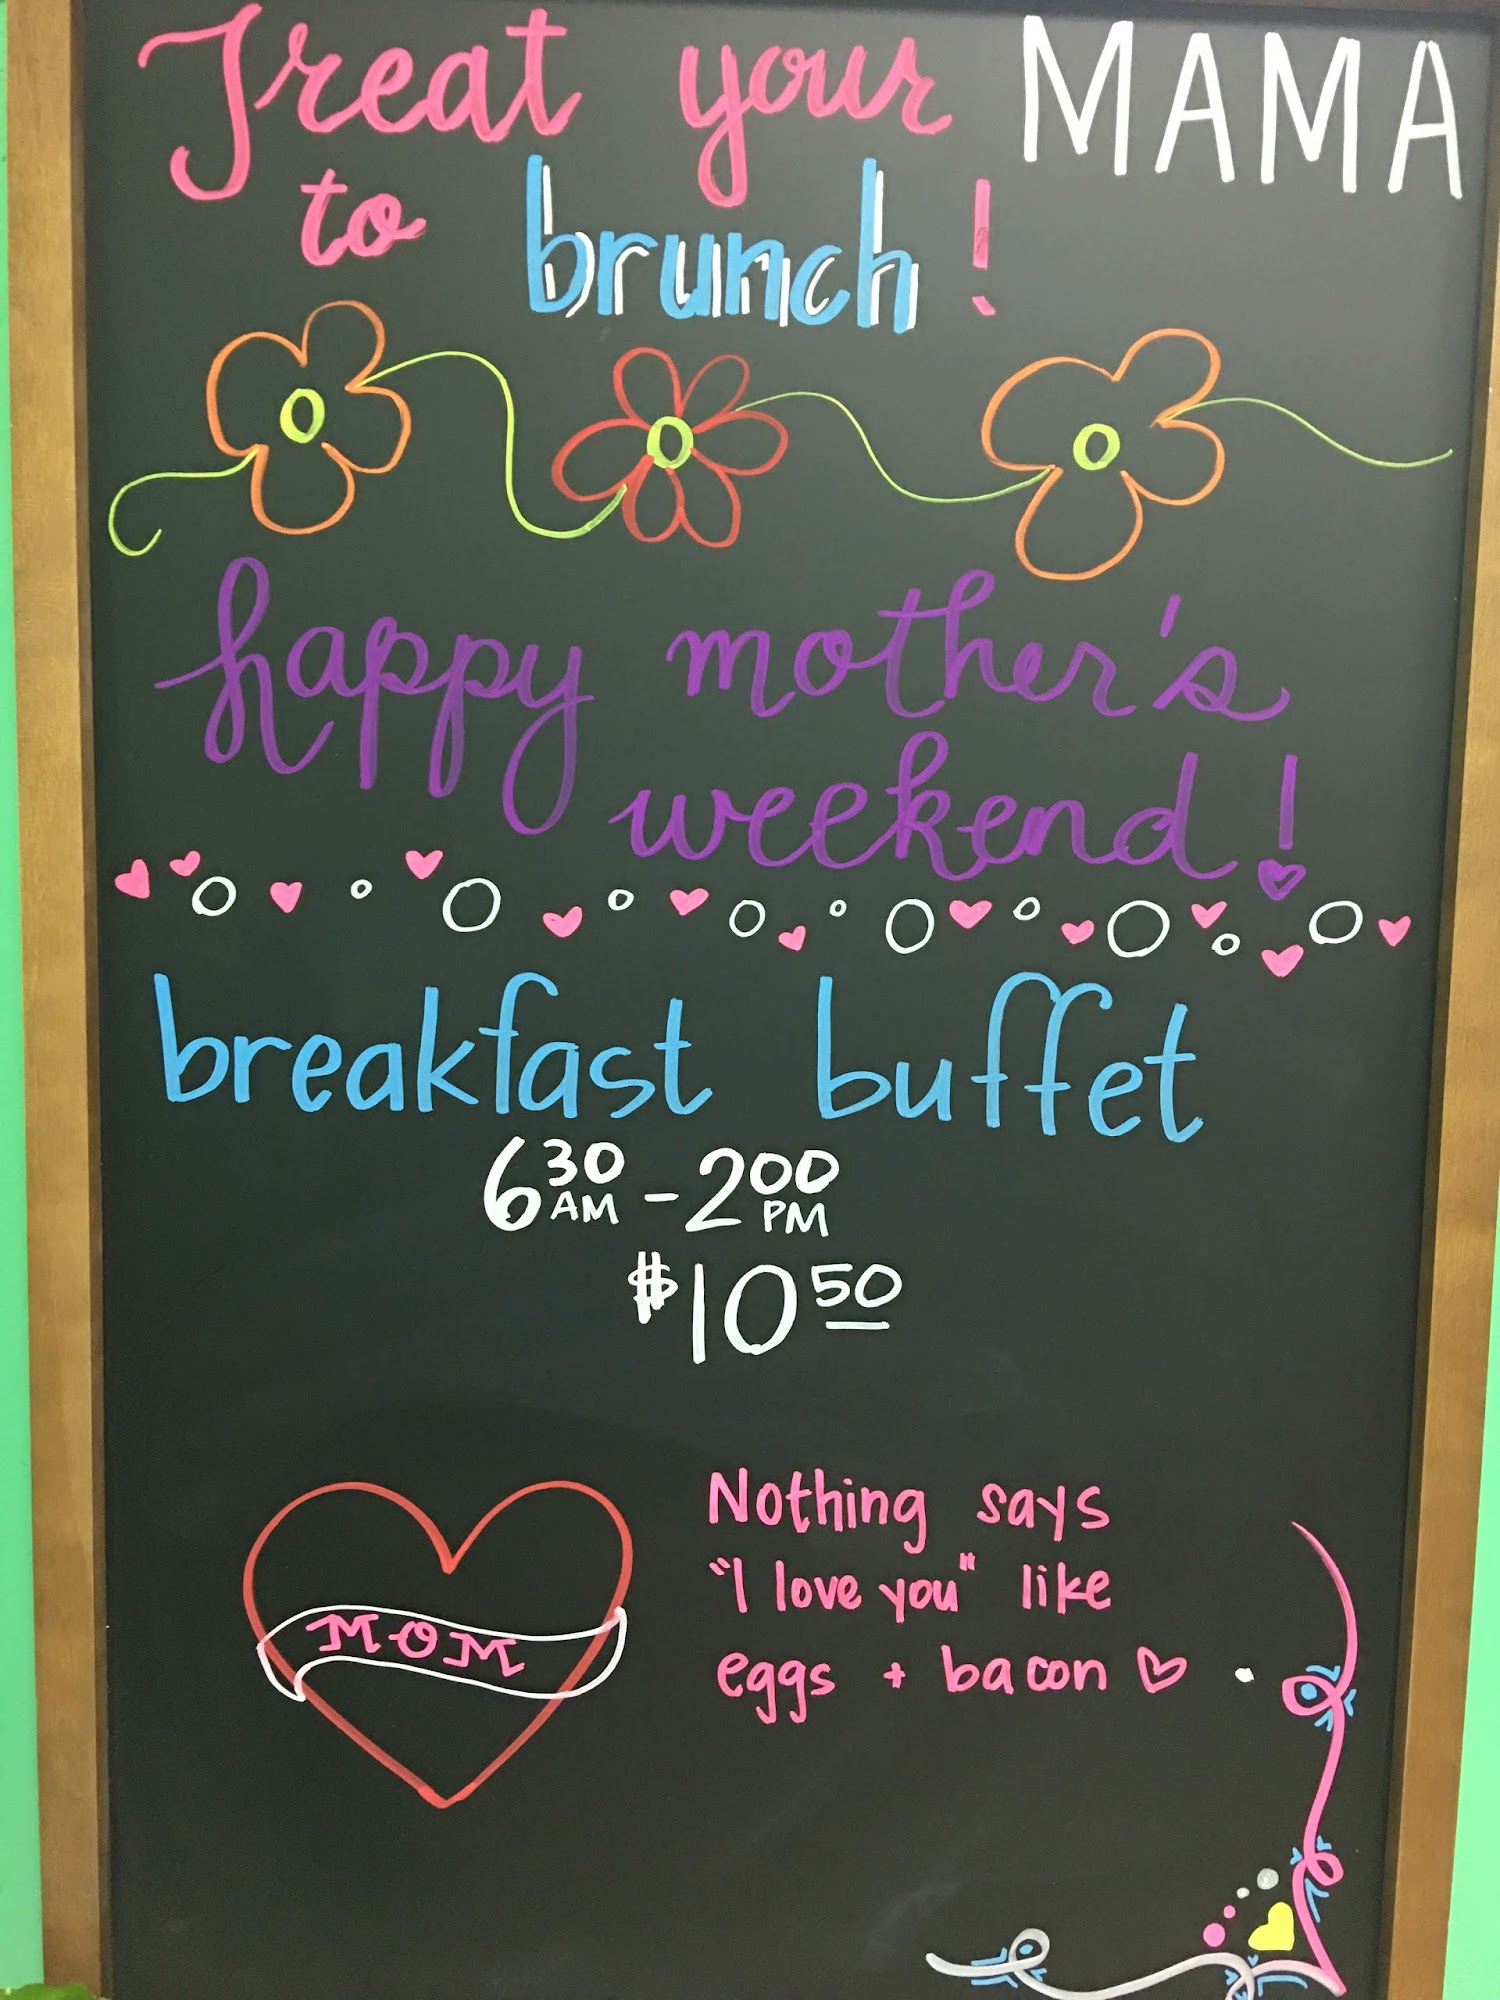 Treat your MAMA
to brunch!
happy mother's
weekend!
breakfast buffet
6 30 AM - 2 00 PM
$10 50
MOM
Nothing says
"I love you" like
eggs + bacon